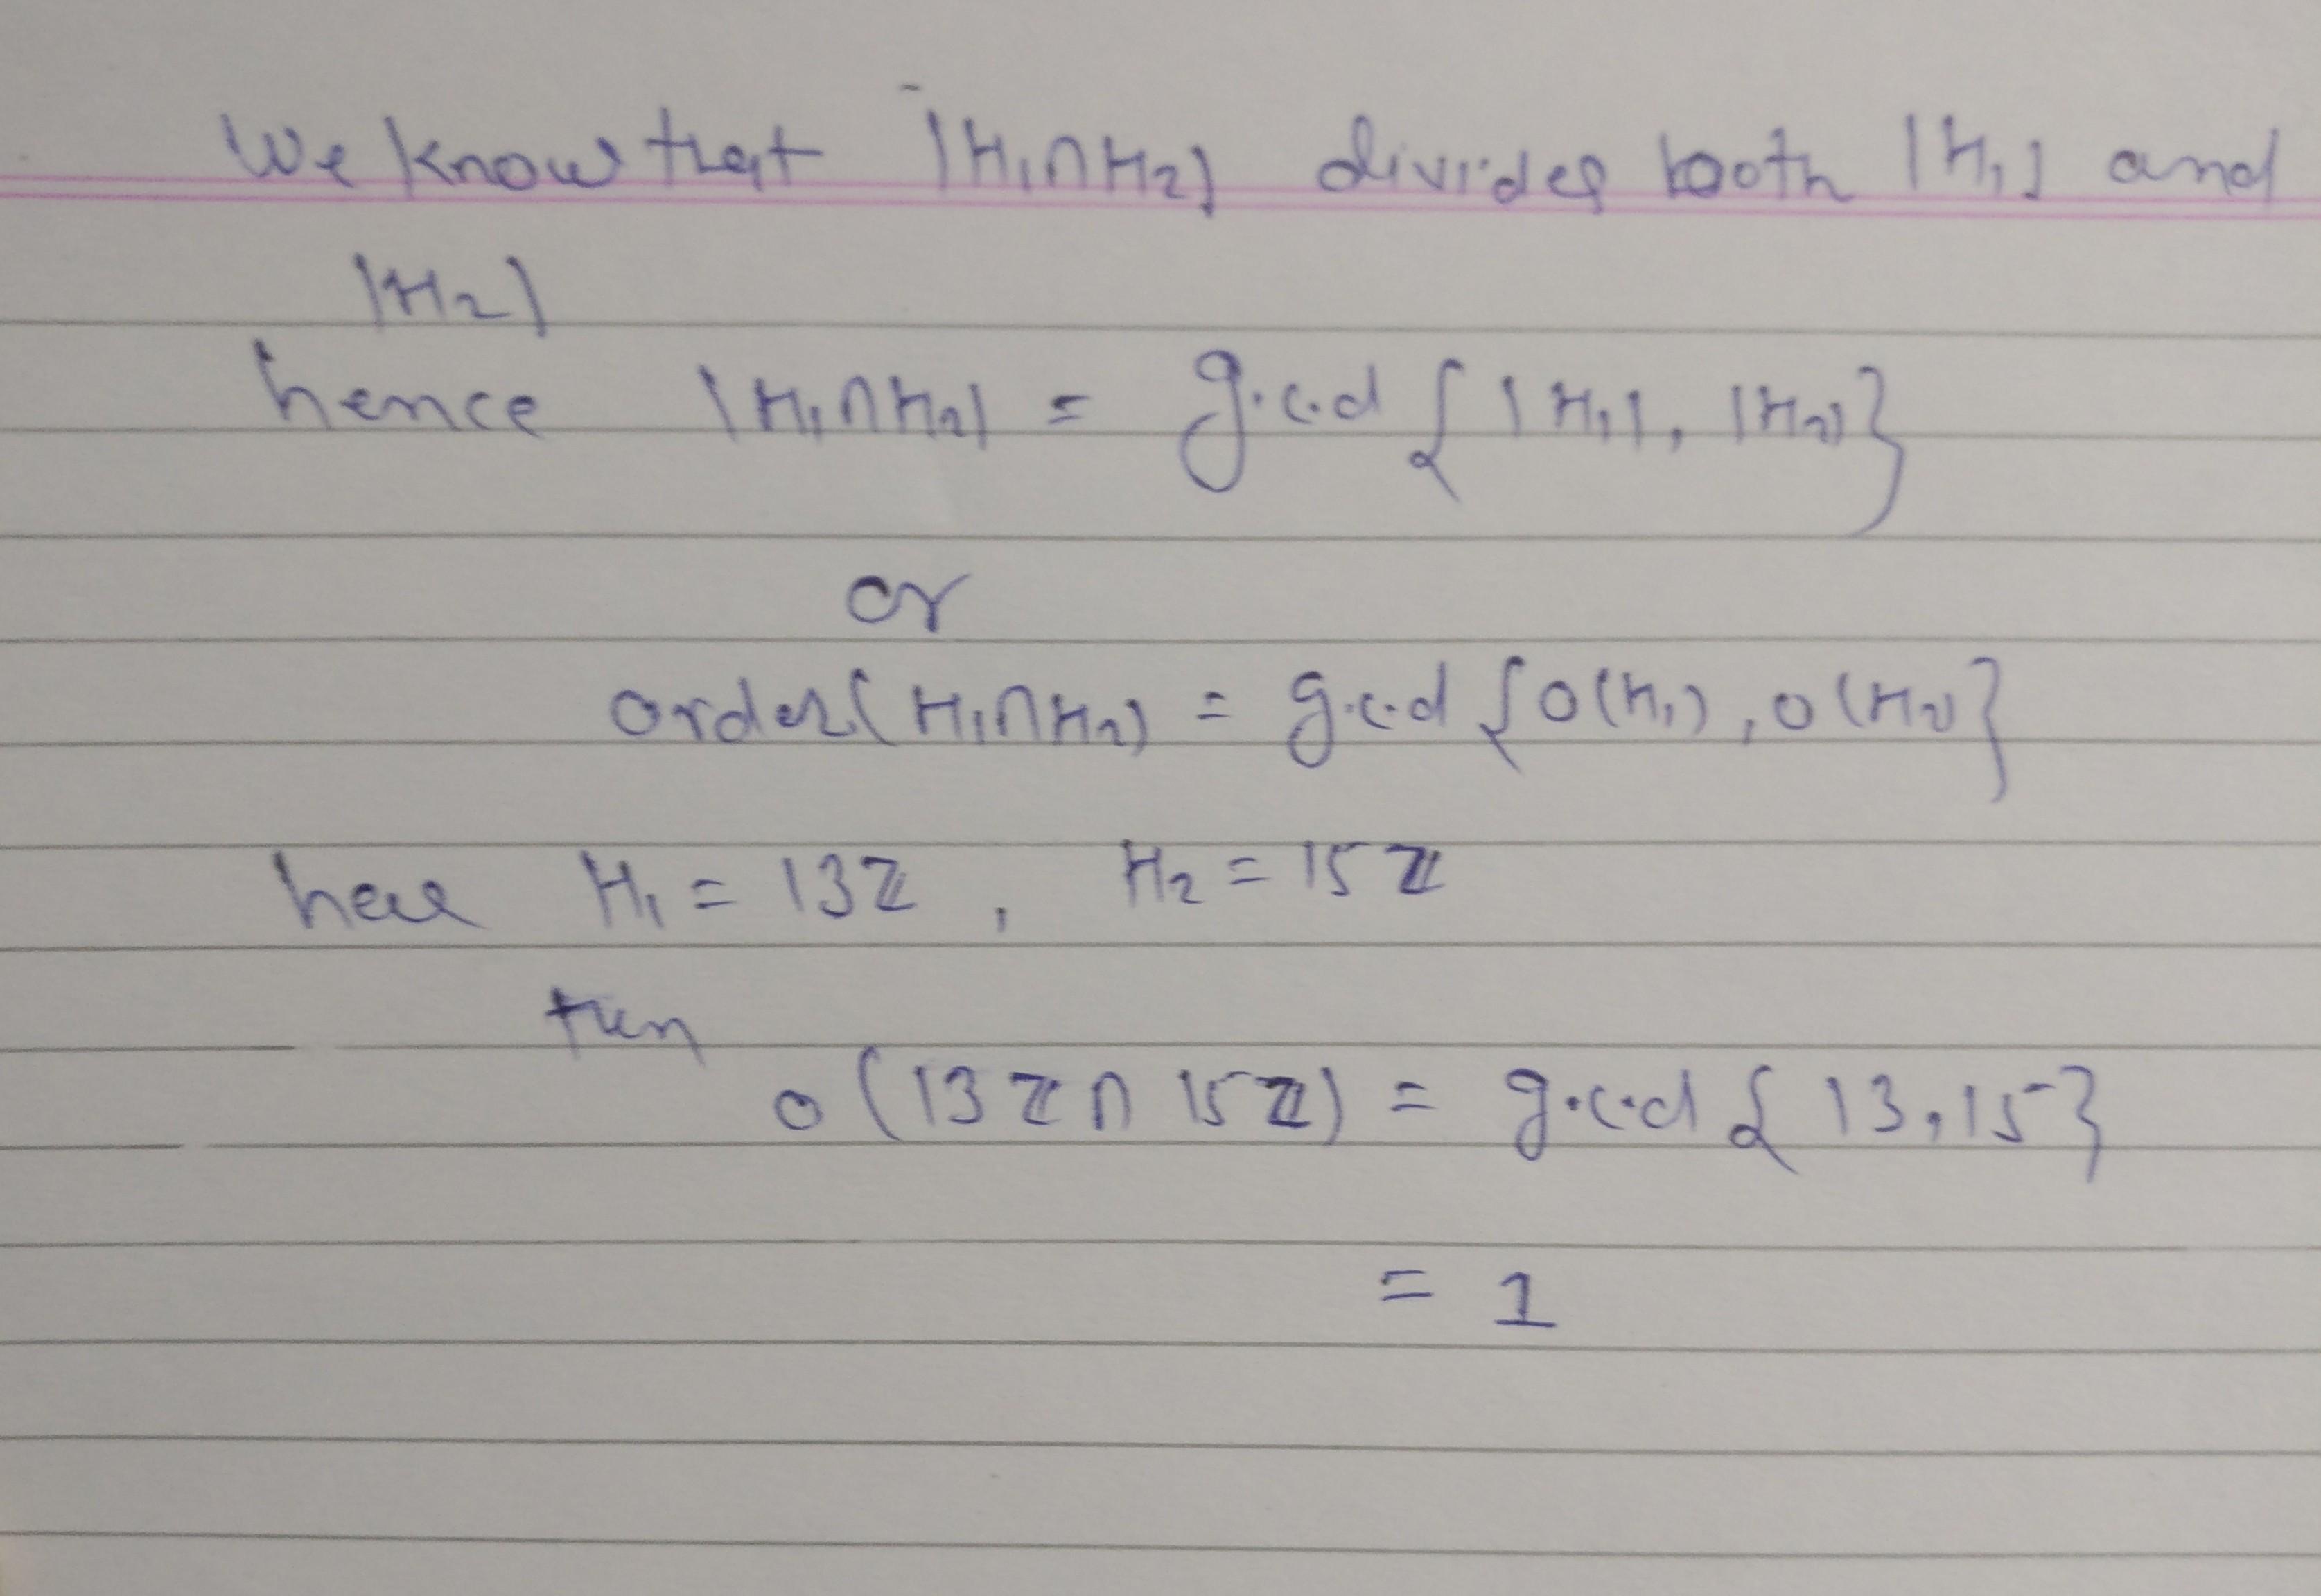 We know that |H₁∩H₂| divides both |H₁| and
|H₂|
hence |H₁∩H₂| = g.c.d {|H₁|, |H₂|}
or
order(H₁∩H₂) = g.c.d {o(H₁), o(H₂)}
here H₁ = 13ℤ , H₂ = 15ℤ
then
o(13ℤ∩15ℤ) = g.c.d {13,15}
= 1